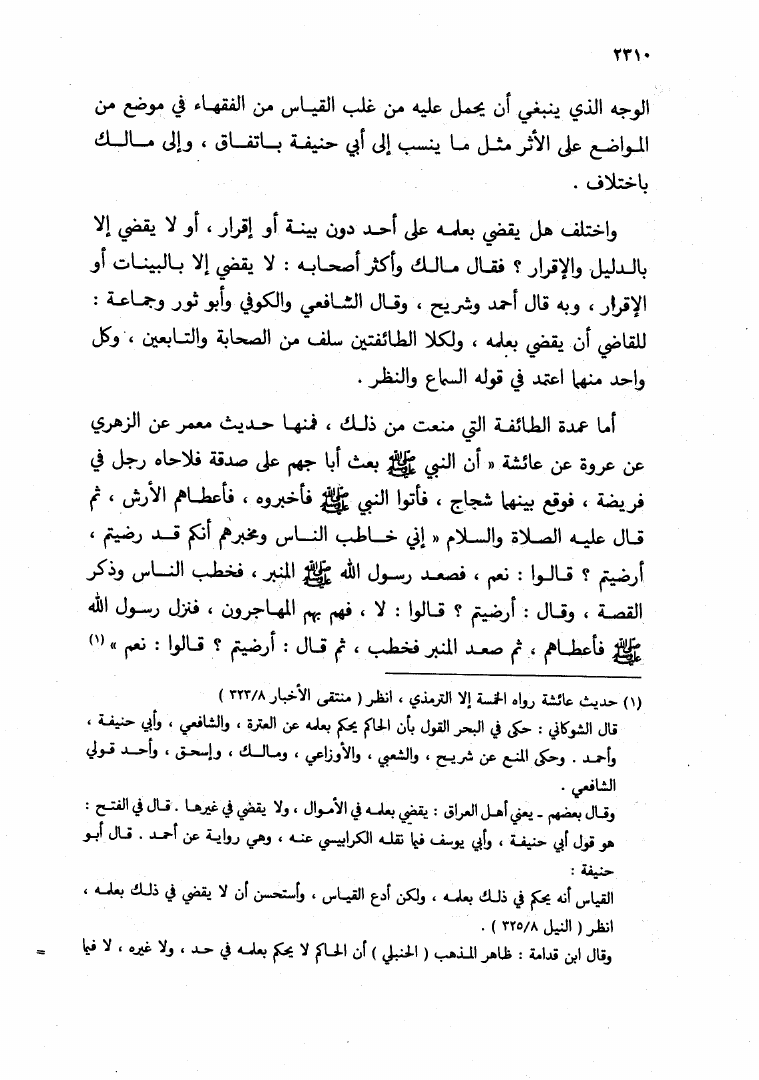 ٢٣١٠
الوجه الذي ينبغي أن يحمل عليه من غلب القياس من الفقهاء في موضع من
المواضع على الأثر مثل ما ينسب إلى أبي حنيفة باتفاق ، وإلى مالك
باختلاف .
واختلف هل يقضي بعلمه على أحد دون بينة أو إقرار ، أو لا يقضي إلا
بالدليل والإقرار ؟ فقال مالك وأكثر أصحابه : لا يقضي إلا بالبينات أو
الإقرار ، وبه قال أحمد وشريح ، وقال الشافعي والكوفي وأبو ثور وجماعة :
للقاضي أن يقضي بعلمه ، ولكلا الطائفتين سلف من الصحابة والتابعين ، وكل
واحد منهما اعتمد في قوله السماع والنظر .
أما عمدة الطائفة التي منعت من ذلك ، فمنها حديث معمر عن الزهري
عن عروة عن عائشة « أن النبي ﷺ بعث أبا جهم على صدقة فلاحاه رجل في
فريضة ، فوقع بينهما شجاج ، فأتوا النبي ﷺ فأخبروه ، فأعطاهم الأرش ، ثم
قال عليه الصلاة والسلام « إني خاطب الناس ومخبرهم أنكم قد رضيتم ،
أرضيتم ؟ قالوا : نعم ، فصعد رسول الله ﷺ المنبر ، فخطب الناس وذكر
القصة ، وقال : أرضيتم ؟ قالوا : لا ، فهم بهم المهاجرون ، فنزل رسول الله
ﷺ فأعطاهم ، ثم صعد المنبر فخطب ، ثم قال : أرضيتم ؟ قالوا : نعم » (١)
(١) حديث عائشة رواه الخمسة إلا الترمذي ، انظر ( منتقى الأخبار ٣٢٣/٨ )
قال الشوكاني : حكى في البحر القول بأن الحاكم يحكم بعلمه عن العترة ، والشافعي ، وأبي حنيفة ،
وأحمد . وحكى المنع عن شريح ، والشعبي ، والأوزاعي ، ومالك ، وإسحق ، وأحد قولي
الشافعي .
وقال بعضهم ـ يعني أهل العراق : يقضي بعلمه في الأموال ، ولا يقضي في غيرها . قال في الفتح :
هو قول أبي حنيفة ، وأبي يوسف فيما نقله الكرابيسي عنه ، وهي رواية عن أحمد . قال أبو
حنيفة :
القياس أنه يحكم في ذلك بعلمه ، ولكن أدع القياس ، وأستحسن أن لا يقضي في ذلك بعلمه ،
انظر ( النيل ٣٢٥/٨ ) .
وقال ابن قدامة : ظاهر المذهب ( الحنبلي ) أن الحاكم لا يحكم بعلمه في حد ، ولا غيره ، لا فيما =